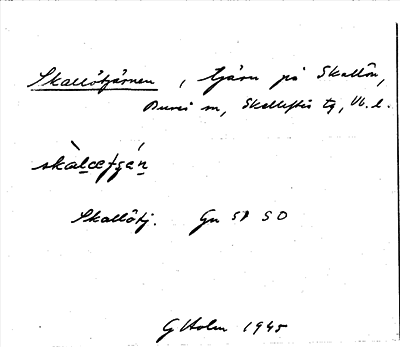 Skallötjärnen, tjärn på Skallön,
Bureå sn, Skellefteå tg, Vb. l.
Skallötj. Gen SV SO
G Holm 1945